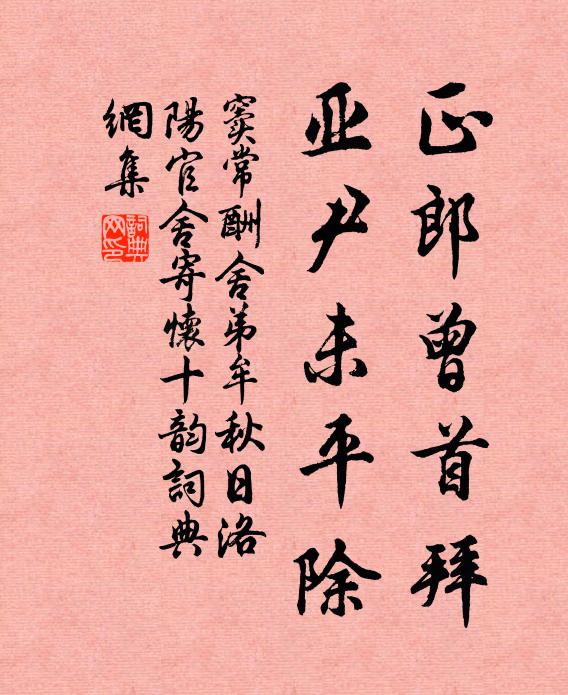 正郎曾首拜
亚尹未平除
窦常酬舍弟牟秋日洛
陽官舍寄懷十韵詞典
網集
詞典
网印